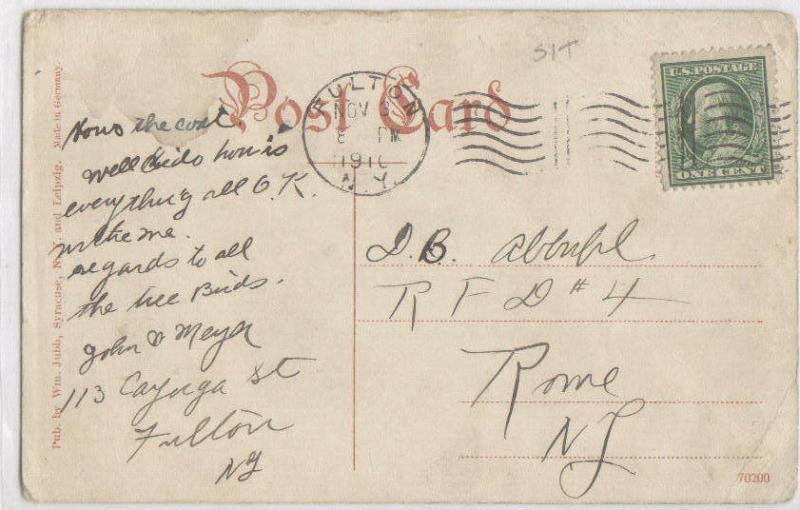 Post Card
SIT
FULTON
NOV
PM
1910
N.Y.
U.S. POSTAGE
ONE CENT
Hows the coat
well Birdo how is
everything all O.K.
with me.
regards to all
the Birds.
John Meyer
113 Cayuga St
Fulton
NY
D.B.
R F D #4
Rome
NY
Pub. by Wm. Jubb, Syracuse, N.Y. and Leipzig. Made in Germany.
70200